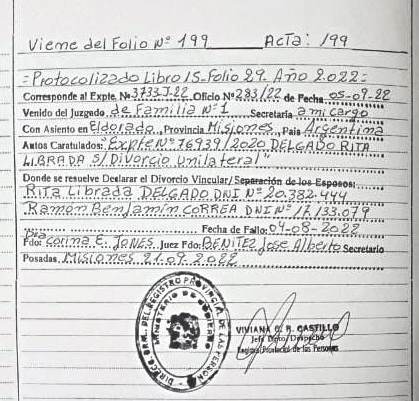 Viene del Folio Nº 199 Acta: 199
=Protocolizado Libro 15-Folio 29. Año 2022=
Corresponde al Expte. Nº 3733-J-22 Oficio Nº 283/22 de Fecha 05-09-22
Venido del Juzgado de Familia Nº1 Secretaría a mi cargo
Con Asiento en Eldorado, Provincia Misiones, País Argentina
Autos Caratulados: "Expte Nº 76939/2020 DELGADO RITA
LIBRADA S/Divorcio Unilateral"
Donde se resuelve Declarar el Divorcio Vincular/Separación de los Esposos:
Rita Librada DELGADO DNI Nº 20.382.444
Ramón Benjamin CORREA DNI Nº 17.133.079
Fecha de Fallo: 04-08-2022
Fdo: Corina E. JONES. Juez Fdo: BENITEZ Jose Alberto Secretario
Posadas, Misiones 21.09.2022
DIREC. GRAL. DEL REGISTRO PROVINCIAL DE LAS PERSONAS
MINISTERIO DE GOBIERNO
VIVIANA G. R. CASTILLO
Jefe Dpto. Despacho
Registro Provincial de las Personas